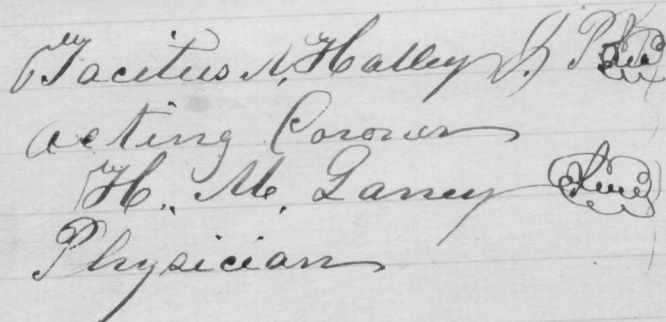 Tacitus N. Halley J. P. Seal
acting Coroner
H. M. Laney Seal
Physician